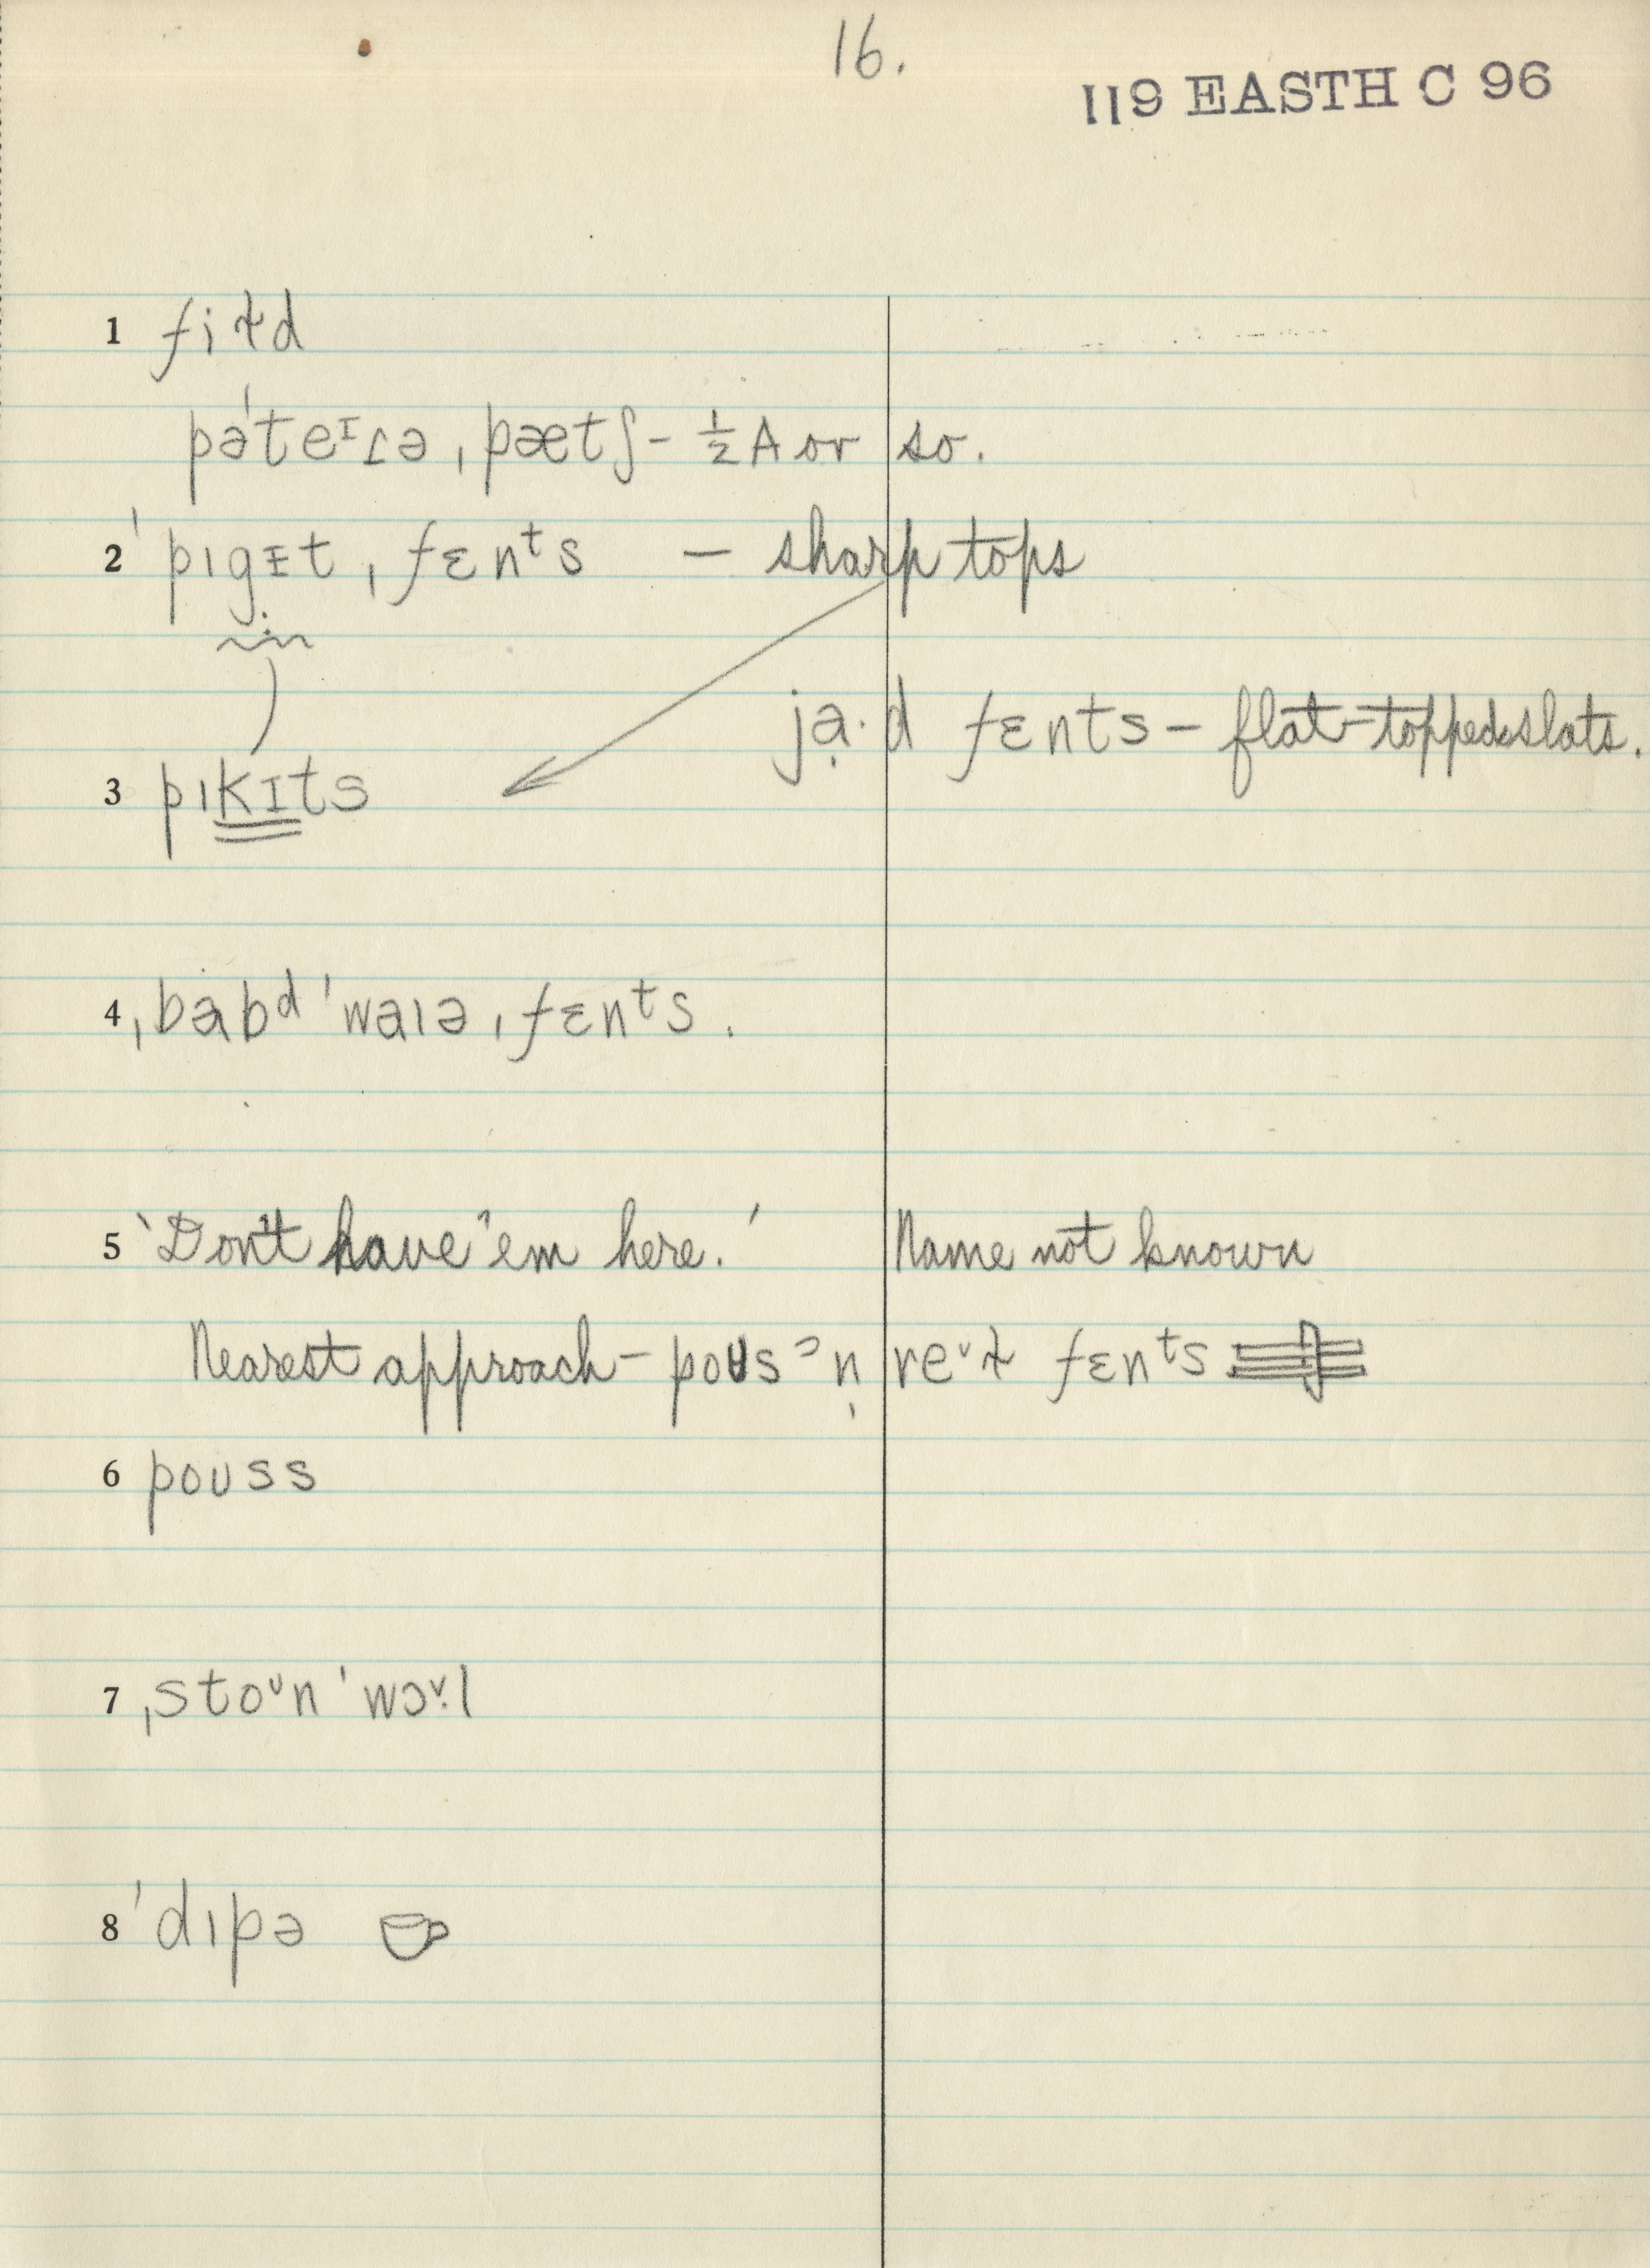 16.
119 EASTH C 96
1 fiɫd
pə'teɪɾə ˌpætʃ - ½ A or so.
2 'pɪgɪt ˌfɛnᵗs — sharp tops
ja̤·d fɛnts - flat-topped slats.
3 pɪkɪts
4 ˌbabᵈ 'waɪə ˌfɛnᵗs.
5 'Don't have 'em here.' Name not known
Nearest approach - poʊs ᵊn̩ reᵛɫ fɛnᵗs
6 poʊss
7 ˌstoᶹn 'wɔᵛ·l
8 'dɪpə